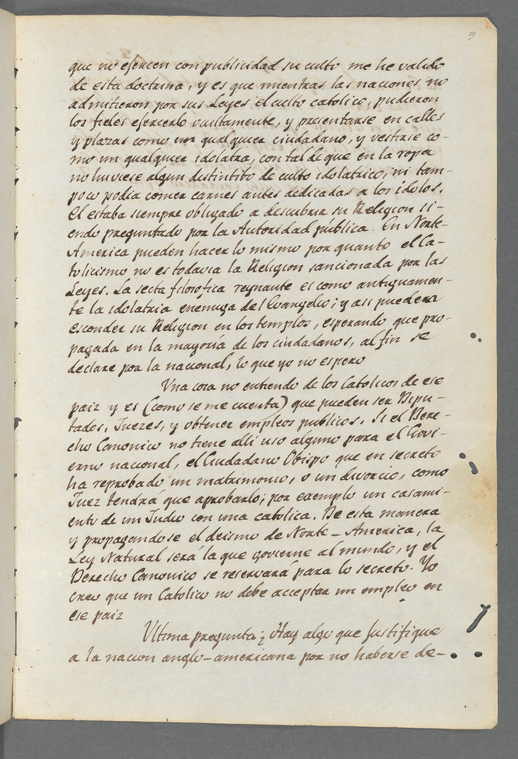 3
que no esercen con publicidad su culto me he valido
de esta doctrina, y es que mientras las naciones no
admitieron por sus Leyes el culto catolico, pudieron
los fieles esercerlo ocultamente, y presentarse en calles
y plazas como un qualquier ciudadano, y vestirse co-
mo un qualquier idolatra, con tal de que en la ropa
no huviese algun distintito de culto idolatrico, ni tam-
poco podia comer carnes antes dedicadas a los idolos.
El estaba siempre obligado a descubrir su Religion si-
endo preguntado por la Autoridad publica. En Norte-
America pueden hacer lo mismo por quanto el Ca-
tolicismo no es todavia la Religion sancionada por las
Leyes. La secta filosofica reynante es como antiguamen-
te la idolatria enemiga del Evangelio; y asi puede
esconder su Religion en los templos, esperando que pro-
pagada en la mayoría de los ciudadanos, al fin se
declare por la nacional, lo que yo no espero
Una cosa no entiendo de los Catolicos de ese
paiz y es (como se me cuenta) que pueden ser Dipu-
tados, Juezes, y obtener empleos publicos. Si el Dere-
cho Canonico no tiene alli uso alguno para el Govi-
erno nacional, el Ciudadano Obispo que en secreto
ha reprobado un matrimonio, o un divorcio, como
Juez tendrá que aprobarlo; por exemplo un casami-
ento de un Judio con una catolica. De esta manera
y propagandose el deismo de Norte-America, la
Ley Natural será la que govierne al mundo, y el
Derecho Canonico se reservará para lo secreto. Yo
creo que un Catolico no debe acceptar un empleo en
ese paiz
Ultima pregunta; Hay algo que justifique
a la nacion anglo-americana por no haberse de-